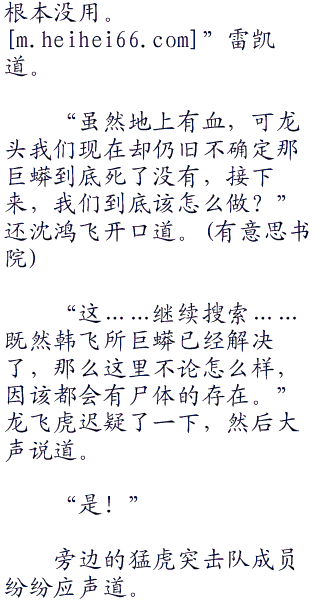 根本没用。
[m.heihei66.com]”雷凯
道。
“虽然地上有血，可龙
头我们现在却仍旧不确定那
巨蟒到底死了没有，接下
来，我们到底该怎么做？”
还沈鸿飞开口道。(有意思书
院)
“这……继续搜索……
既然韩飞所巨蟒已经解决
了，那么这里不论怎么样，
因该都会有尸体的存在。”
龙飞虎迟疑了一下，然后大
声说道。
“是！”
旁边的猛虎突击队成员
纷纷应声道。